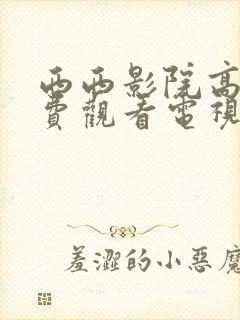 西西影院高
費觀看電視
羞澀的小惡魔